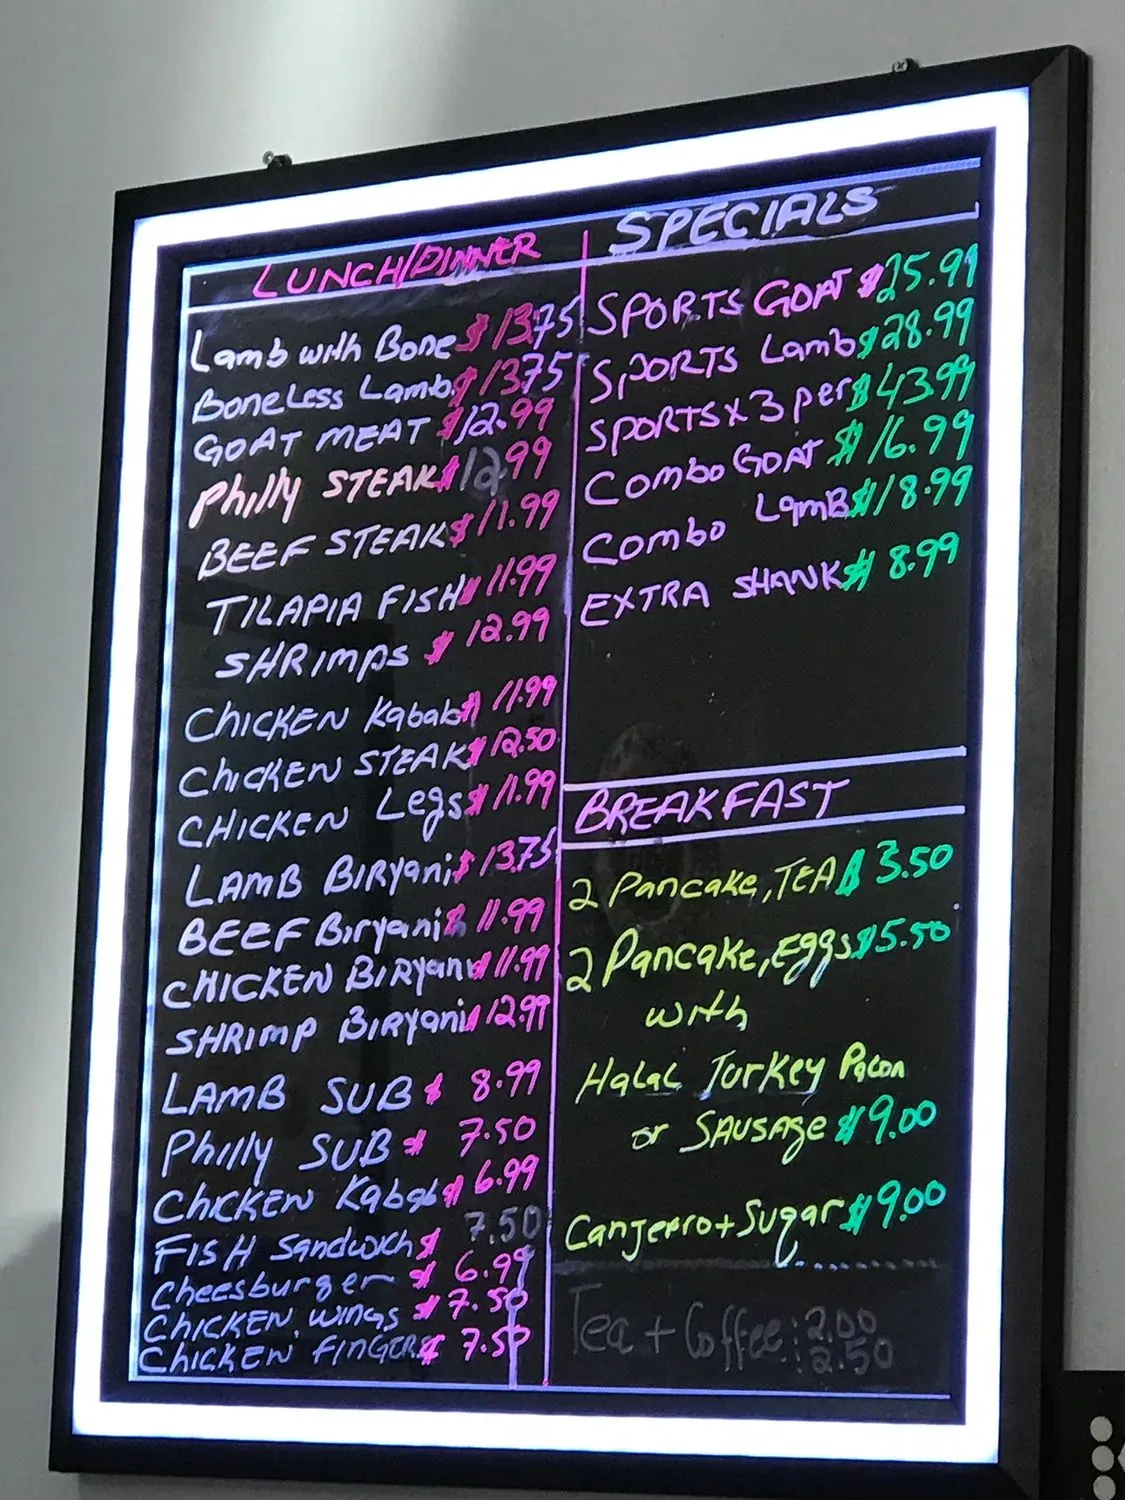 LUNCH/DINNER
Lamb with Bone $13.75
Boneless Lamb $13.75
GOAT MEAT $12.99
Philly STEAK $12.99
BEEF STEAK $11.99
TILAPIA FISH $11.99
SHRIMPS $12.99
CHICKEN Kabab $11.99
CHICKEN STEAK $12.50
CHICKEN Legs $11.99
LAMB BIRyani $13.75
BEEF Biryani $11.99
CHICKEN BIRyani $11.99
SHRIMP BIRyani $12.99
LAMB SUB $8.99
Philly SUB $7.50
CHICKEN Kabab $6.99
FISH Sandwich $7.50
Cheesburger $6.99
CHICKEN WINGS $7.50
CHICKEN FINGERS $7.50
SPECIALS
SPORTS GOAT $25.99
SPORTS Lamb $28.99
SPORTS x 3 per $43.99
Combo GOAT $16.99
Combo LamB $18.99
EXTRA SHANK $8.99
BREAKFAST
2 Pancake, TEA $3.50
2 Pancake, Eggs $5.50
with
Halal Turkey Bacon
or SAUSAge $9.00
Canjeero + Sugar $9.00
Tea + Coffee : 2.00
: 2.50